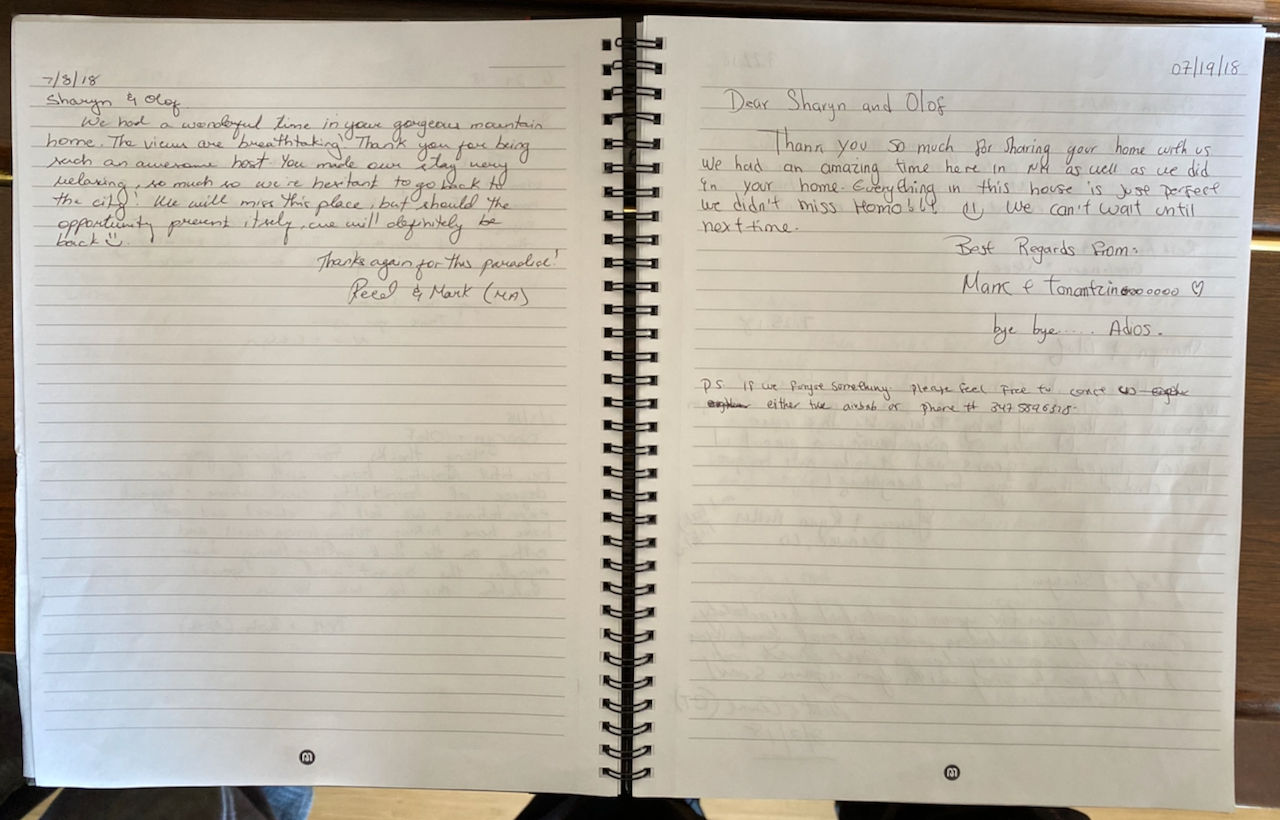 7/8/18
Sharyn & Olof
We had a wonderful time in your gorgeous mountain
home. The views are breathtaking! Thank you for being
such an awesome host You made our stay very
relaxing, so much so we're hesitant to go back to
the city! We will miss this place, but should the
opportunity present itself, we will definitely be
back
Thanks again for this paradise!
& Mark (MA)
07/19/18
Dear Sharyn and Olof
Thann you so much for sharing your home with us
we had an amazing time here in NH as well as we did
in your home. Everything in this house is just perfect
we didn't miss Homo!!!! We can't wait until
next time.
Best Regards From:
Mark & Tonantzin
bye bye..... Adios.
PS if we forgot something please feel free to
either the airbnb or phone #